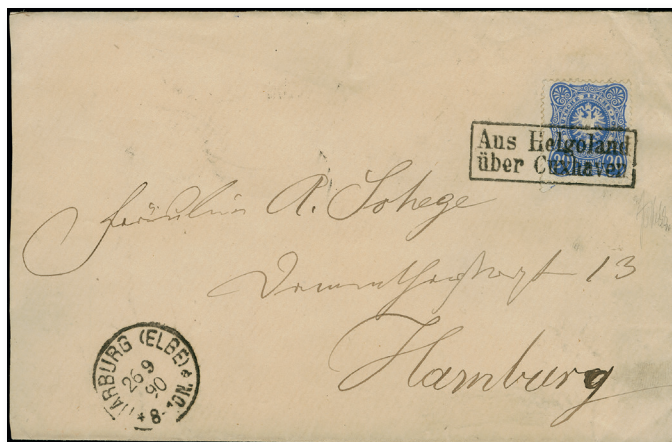 Aus Helgoland
über Cuxhaven
20 20
Fräulein A. Sohege
Dammthorstraße 13
Hamburg
HARBURG (ELBE)
26 9
90
8-9N.